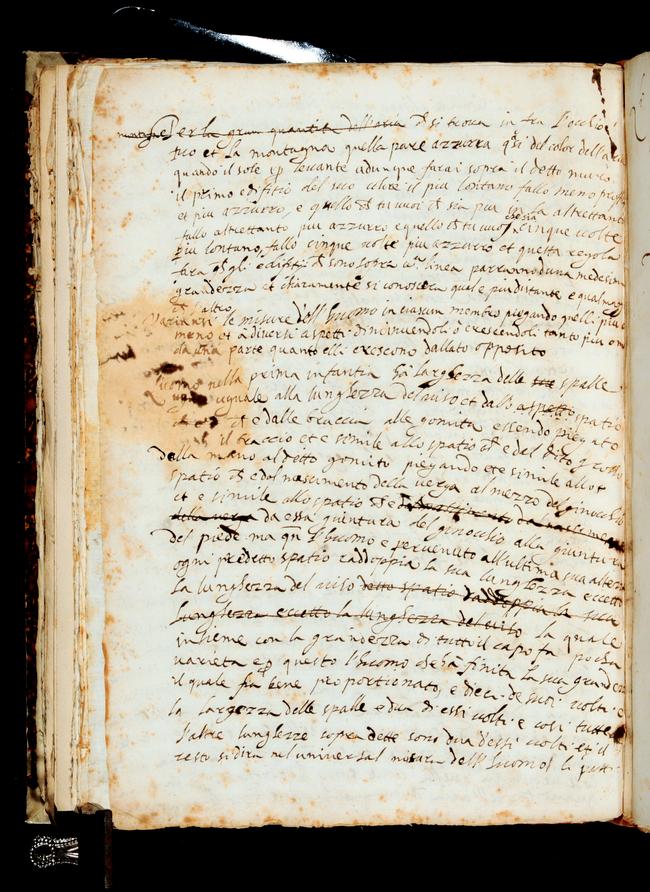 montagne Per la gran quantità dell'aria ch si trova in fra l'occhio
tuo et la montagna quella pare azzurra qsi del color dell'a
quando il sole ep levante adunque farai sopra il detto muro
il primo edifitio del suo colore il piu lontano fallo meno prof
et piu azzurro, e quello ch tu vuoi ch sia piu in la altrettanto
fallo altrettanto piu azzurro e quello ch tu vuoi che sia cinque volte
piu lontano, fallo cinque volte piu azzurro et questa regola
fara ch gli edifitij ch sono sopra una linea parranno d'una medesima
grandezza et chiaramente si conoscera quale piu distante e qual mag
ch l'altro
Variansi le misure dell'huomo in ciascun membro piegando quelli piu o
meno et a diversi aspetti diminuendoli o crescendoli tanto piu o m
da una parte quanto elli crescono dallato opposito
L'uomo nella prima infantia ha larghezza delle spalle
uguale alla lunghezza del viso et dallo spatio
ch e dalle braccia alle gomita essendo piegato
il braccio et e simile allo spatio ch e dal dito grosso
della mano al detto gomito piegando et e simile allo
spatio ch e dal nascimento della verga al mezzo del ginocchio
et e simile allo spatio ch e dal nascimento da nascimento
della verga da essa giuntura del ginocchio alla giuntura
del piede ma qn l'huomo e pervenuto all'ultima sua altezza
ogni predetto spatio raddoppia la sua lunghezza eccetto
la lunghezza del viso detto spatio raddoppia la sua
lunghezza eccetto la lunghezza del viso la quale
insieme con la grandezza di tutto il capo fa pocha
varieta e p questo l'huomo che ha finita la sua grandezza
il quale sia bene proportionato, e dieci de suoi volti e
la largezza delle spalle e dua di essi volti e così tutte
l'altre lunghezze sopra dette sono dua d'essi volti et il
resto si dira nel universal misura dell'huomo